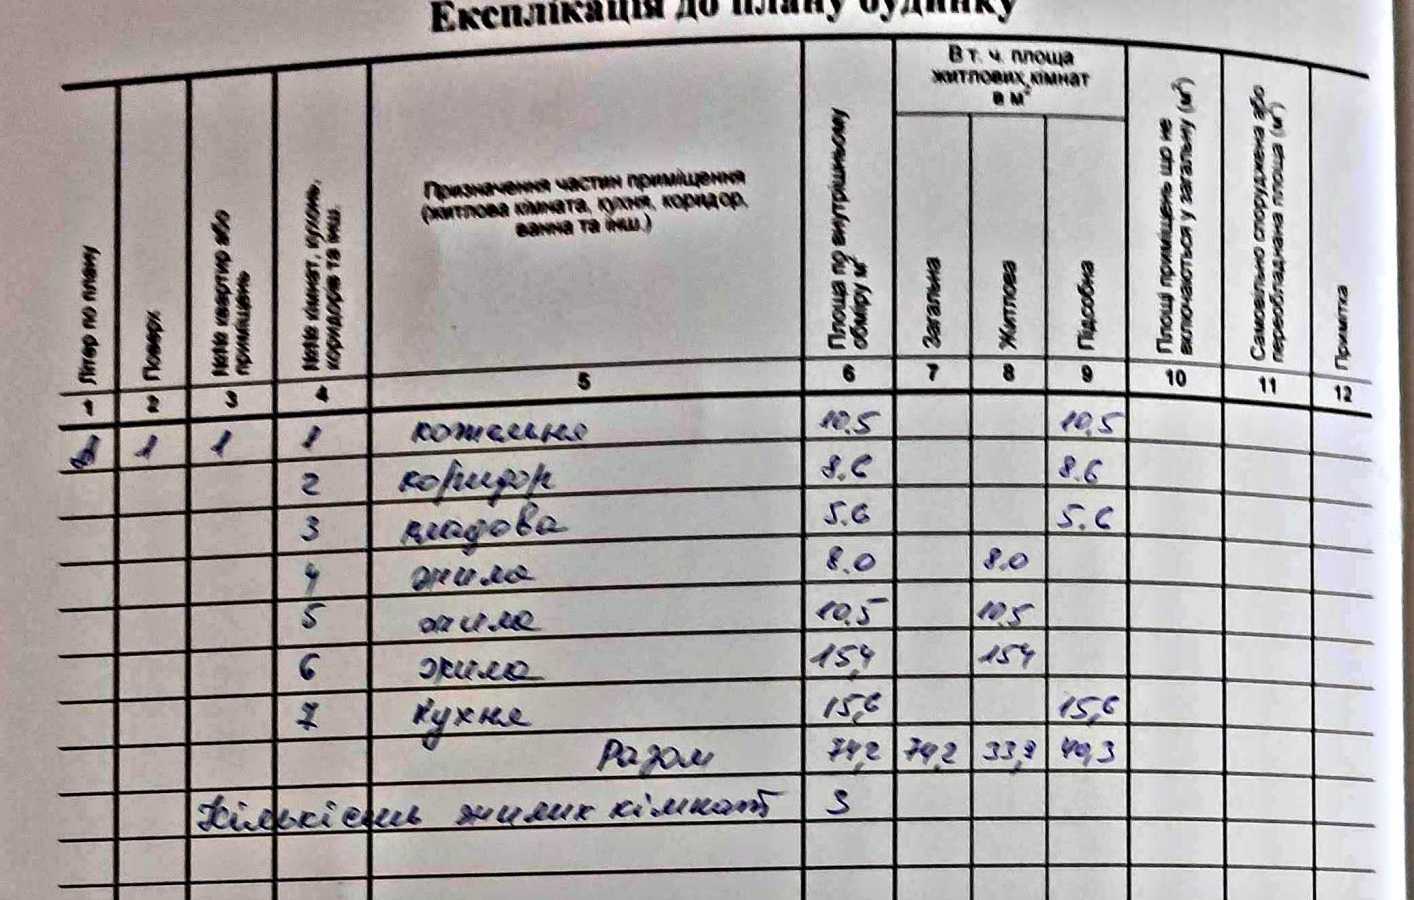 Експлікація до плану будинку
Літер по плану
Поверх
№№ квартир або приміщень
№№ кімнат, кухонь, коридорів та інш.
Призначення частин приміщення
(житлова кімната, кухня, коридор,
ванна та інш.)
Площа по внутрішньому обміру м²
В т. ч. площа
житлових кімнат
в м²
Загальна
Житлова
Підсобна
Площі приміщень що не включаються у загальну (м²)
Самовільно споруджена або переобладнана площа (м²)
Примітка
1 2 3 4 5 6 7 8 9 10 11 12
1 1 1 котельня 10.5 10.5
2 коридор 8.6 8.6
3 кладова 5.6 5.6
4 жила 8.0 8.0
5 жила 10,5 10,5
6 жила 15,4 15,4
7 Кухня 15,6 15,6
Разом 74,2 74,2 33,9 40,3
Кількість жилих кімнат 3